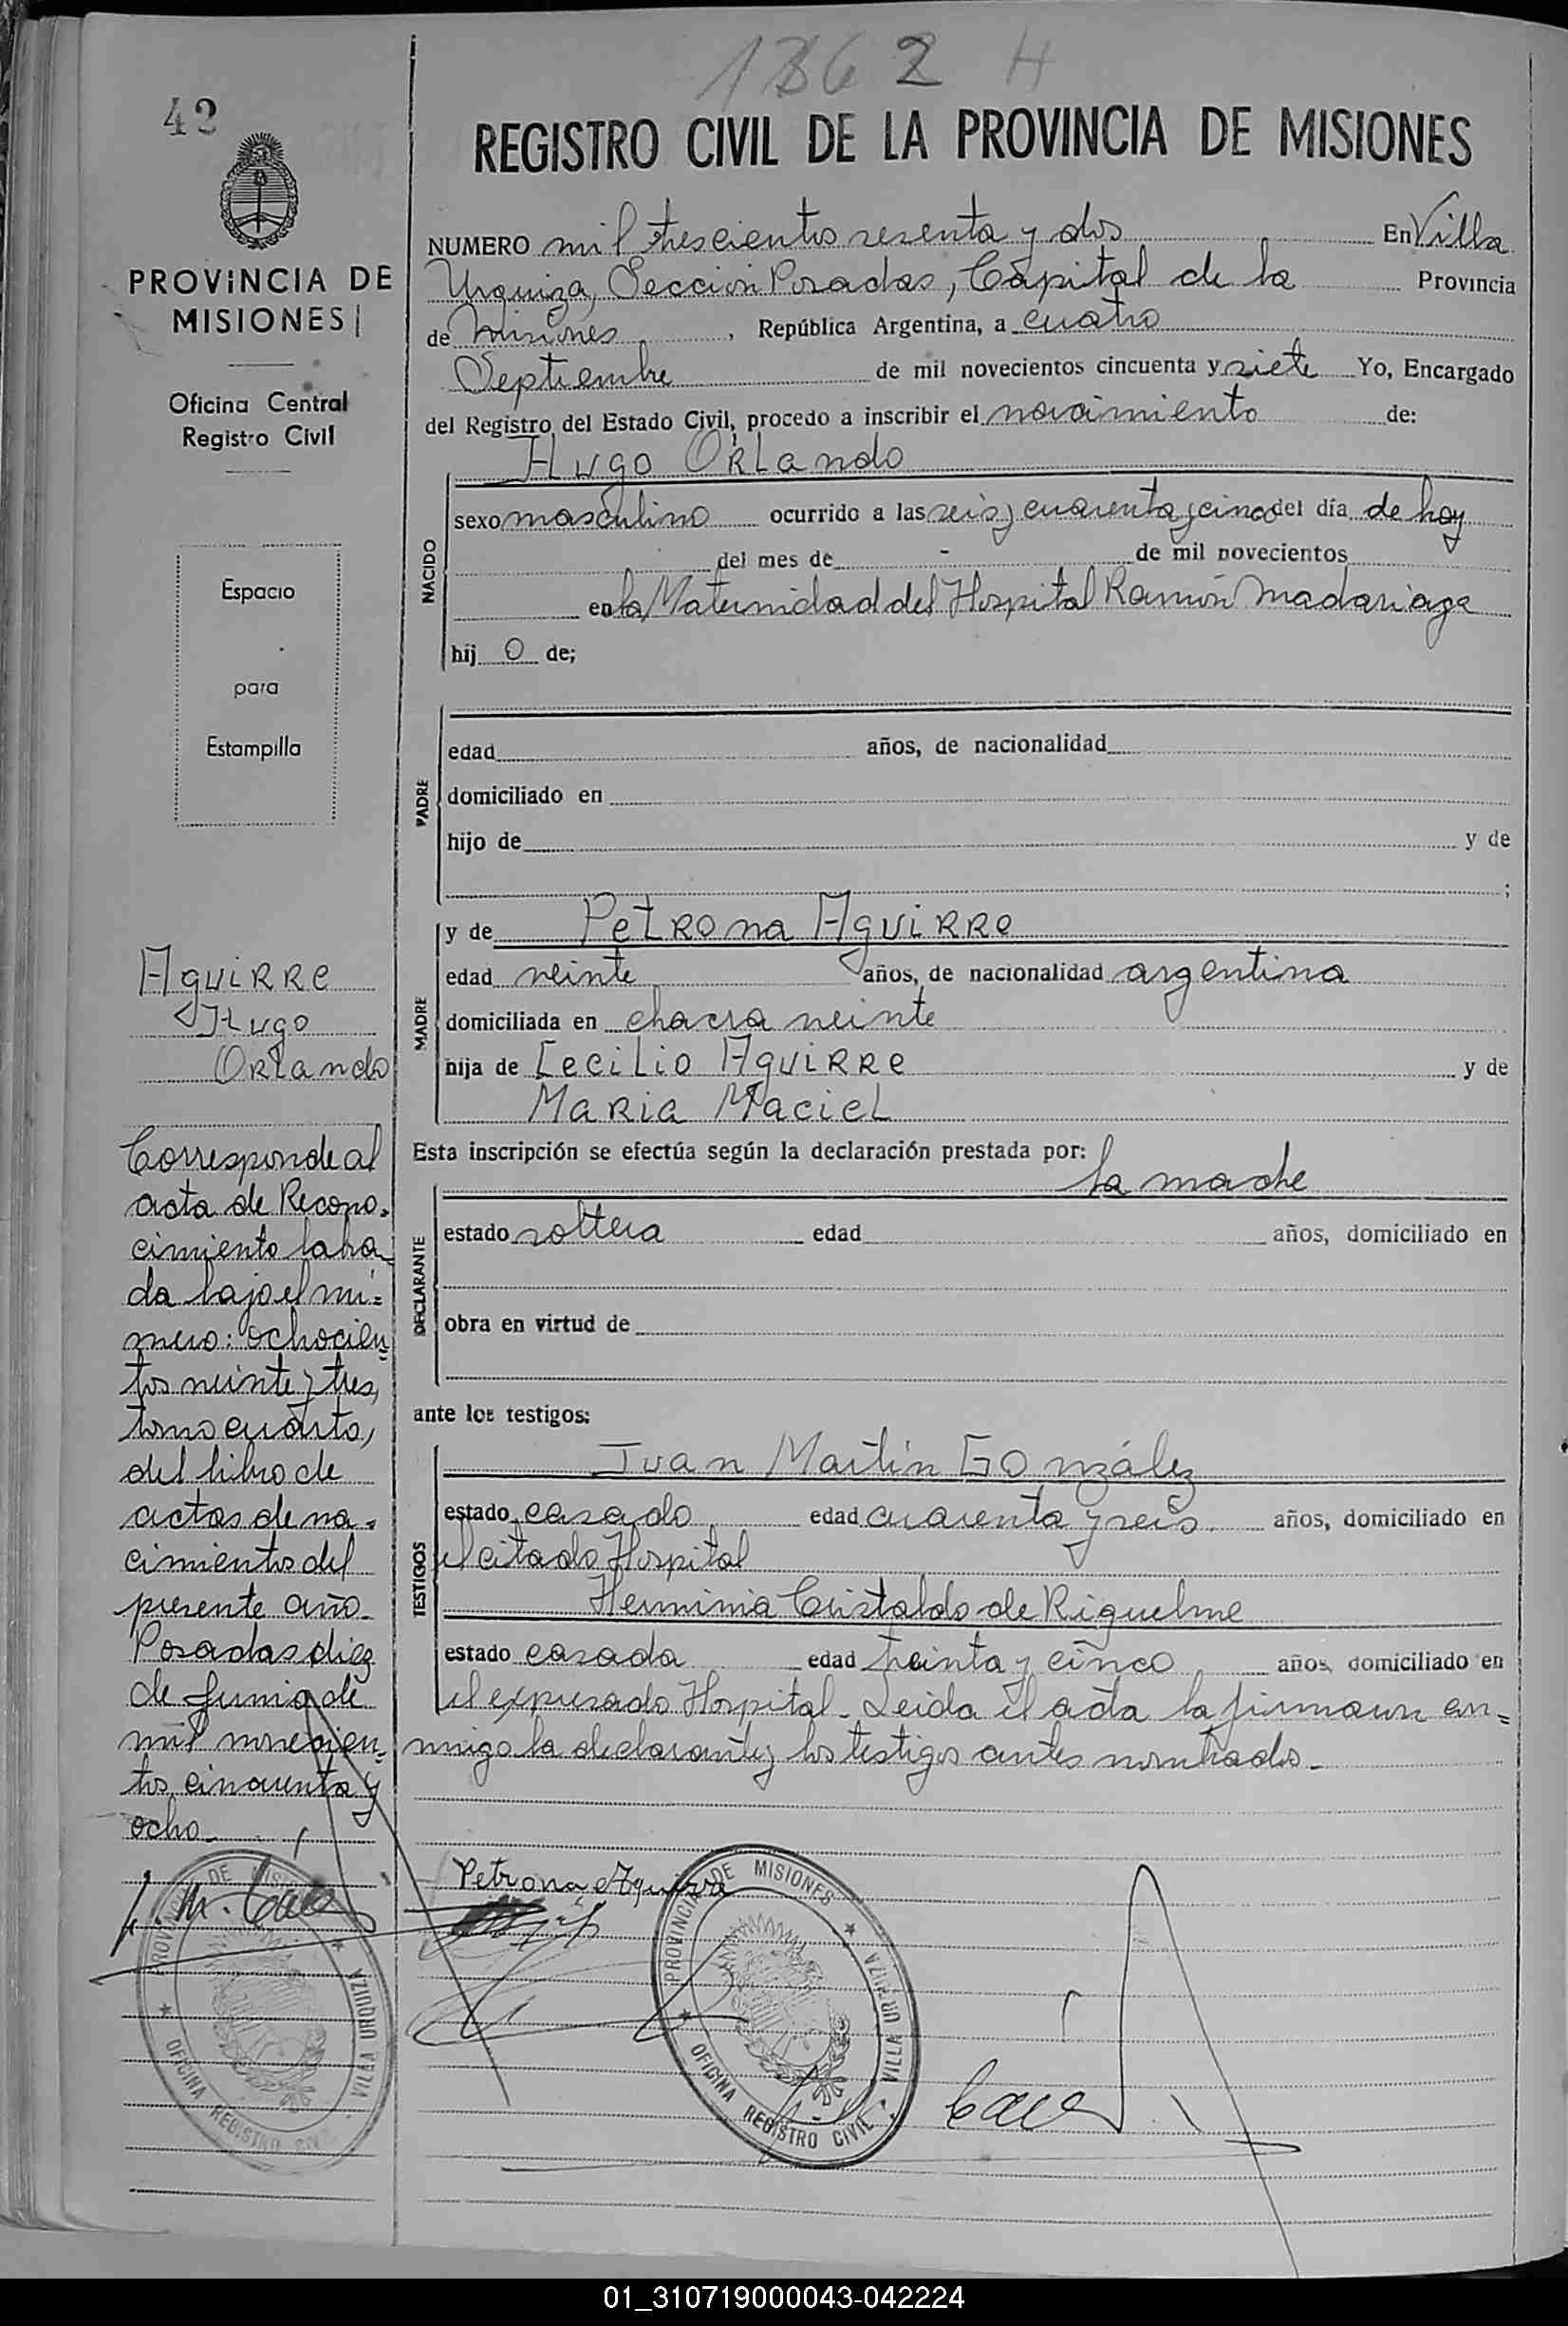 1362 H
42
REGISTRO CIVIL DE LA PROVINCIA DE MISIONES
PROVINCIA DE
MISIONES
Oficina Central
Registro Civil
Espacio
para
Estampilla
NUMERO mil trescientos sesenta y dos En Villa
Urquiza, Sección Posadas, Capital de la Provincia
de Misiones, República Argentina, a cuatro
Septiembre de mil novecientos cincuenta y siete Yo, Encargado
del Registro del Estado Civil, procedo a inscribir el nacimiento de:
Hugo Orlando
NACIDO
sexo masculino ocurrido a las seis y cuarenta y cinco del día de hoy
del mes de - de mil novecientos
en la Maternidad del Hospital Ramón Madariaga
hij o de;
PADRE
edad años, de nacionalidad
domiciliado en
hijo de y de
;
MADRE
y de Petrona Aguirre
edad veinte años, de nacionalidad argentina
domiciliada en chacra veinte
hija de Cecilio Aguirre y de
Maria Maciel
Esta inscripción se efectúa según la declaración prestada por:
la madre
DECLARANTE
estado soltera edad años, domiciliado en
obra en virtud de
ante los testigos:
TESTIGOS
Juan Martín González
estado casado edad cuarenta y seis años, domiciliado en
el citado Hospital
Herminia Cristaldo de Riquelme
estado casada edad treinta y cinco años, domiciliado en
el expresado Hospital. Leida el acta la firmaron con=
migo la declarante y los testigos antes nombrados.
Aguirre
Hugo
Orlando
Corresponde al
acta de Recono=
cimiento labra
da bajo el nú=
mero: ochocien
tos veinte y tres,
tomo cuarto,
del libro de
actas de na=
cimientos del
presente año.
Posadas diez
de Junio de
mil novecien=
tos cincuenta y
ocho.
Petrona Aguirre
PROVINCIA DE MISIONES
VILLA URQUIZA
OFICINA REGISTRO CIVIL
PROVINCIA DE MISIONES
VILLA URQUIZA
OFICINA REGISTRO CIVIL
01_310719000043-042224